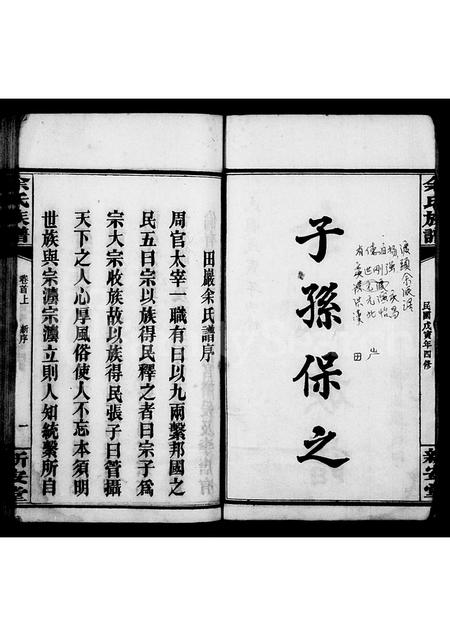 余氏族譜
民國戊寅年四修
新安堂
子孫保之
田巖余氏譜序
周官太宰一職有曰以九兩繫邦國之
民五曰宗以族得民釋之者曰宗子為
宗大宗收族故以族得民張子曰管攝
天下之人心厚風俗使人不忘本須明
世族與宗灋宗灋立則人知統繫所自
余氏族譜
卷首上
新序
一
新安堂